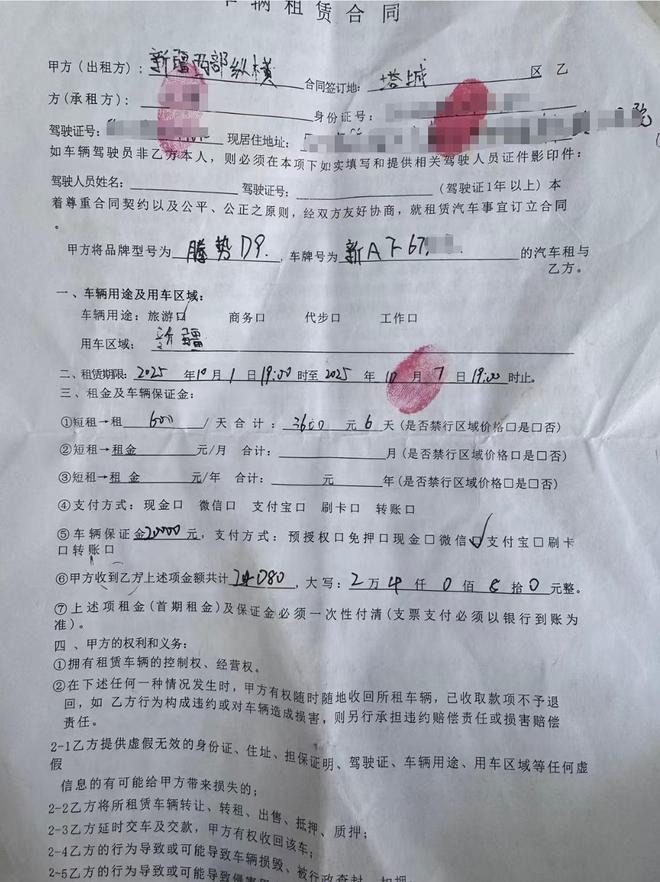 车辆租赁合同
甲方（出租方）：新疆西部纵横 合同签订地：塔城 区 乙
方（承租方）： 身份证号：
驾驶证号： 现居住地址：
如车辆驾驶员非乙方本人，则必须在本项下如实填写和提供相关驾驶人员证件影印件：
驾驶人员姓名： 驾驶证号： （驾驶证1年以上）本
着尊重合同契约以及公平、公正之原则，经双方友好协商，就租赁汽车事宜订立合同
。
甲方将品牌型号为 腾势D9. ，车牌号为 新AF67 的汽车租与
乙方。
一、车辆用途及用车区域：
车辆用途：旅游口 商务口 代步口 工作口
用车区域： 新疆
二、租赁期限：2025 年10月1日19:00时至2025 年 10 月 7 日19:00时止。
三、租金及车辆保证金：
①短租→租 600 / 天 合 计： 3600 元 6 天（是否禁行区域价格口是口否）
②短租→租金 元/月 合计： 月（是否禁行区域价格口是口否）
③短租→租 金 元/年 合计： 元 年（是否禁行区域价格口是口否）
④支付方式：现金口 微信口 支付宝口 刷卡口 转账口
⑤车辆保证金20000元，支付方式：预授权口免押口现金口微信☑支付宝口刷卡
口转账口
⑥甲方收到乙方上述项金额共计24080，大写：2万4仟0佰8拾0元整。
⑦上述项租金（首期租金）及保证金必须一次性付清（支票支付必须以银行到账为
准）。
四、甲方的权利和义务：
①拥有租赁车辆的控制权、经营权。
②在下述任何一种情况发生时，甲方有权随时随地收回所租车辆，已收取款项不予退
回，如 乙方行为构成违约或对车辆造成损害，则另行承担违约赔偿责任或损害赔偿
责任。
2-1乙方提供虚假无效的身份证、住址、担保证明、驾驶证、车辆用途、用车区域等任何虚
假
信息的有可能给甲方带来损失的；
2-2乙方将所租赁车辆转让、转租、出售、抵押、质押；
2-3乙方延时交车及交款，甲方有权收回该车；
2-4乙方的行为导致或可能导致车辆损毁、被行政查封、扣押
2-5乙方的行为导致或可能导致侵害